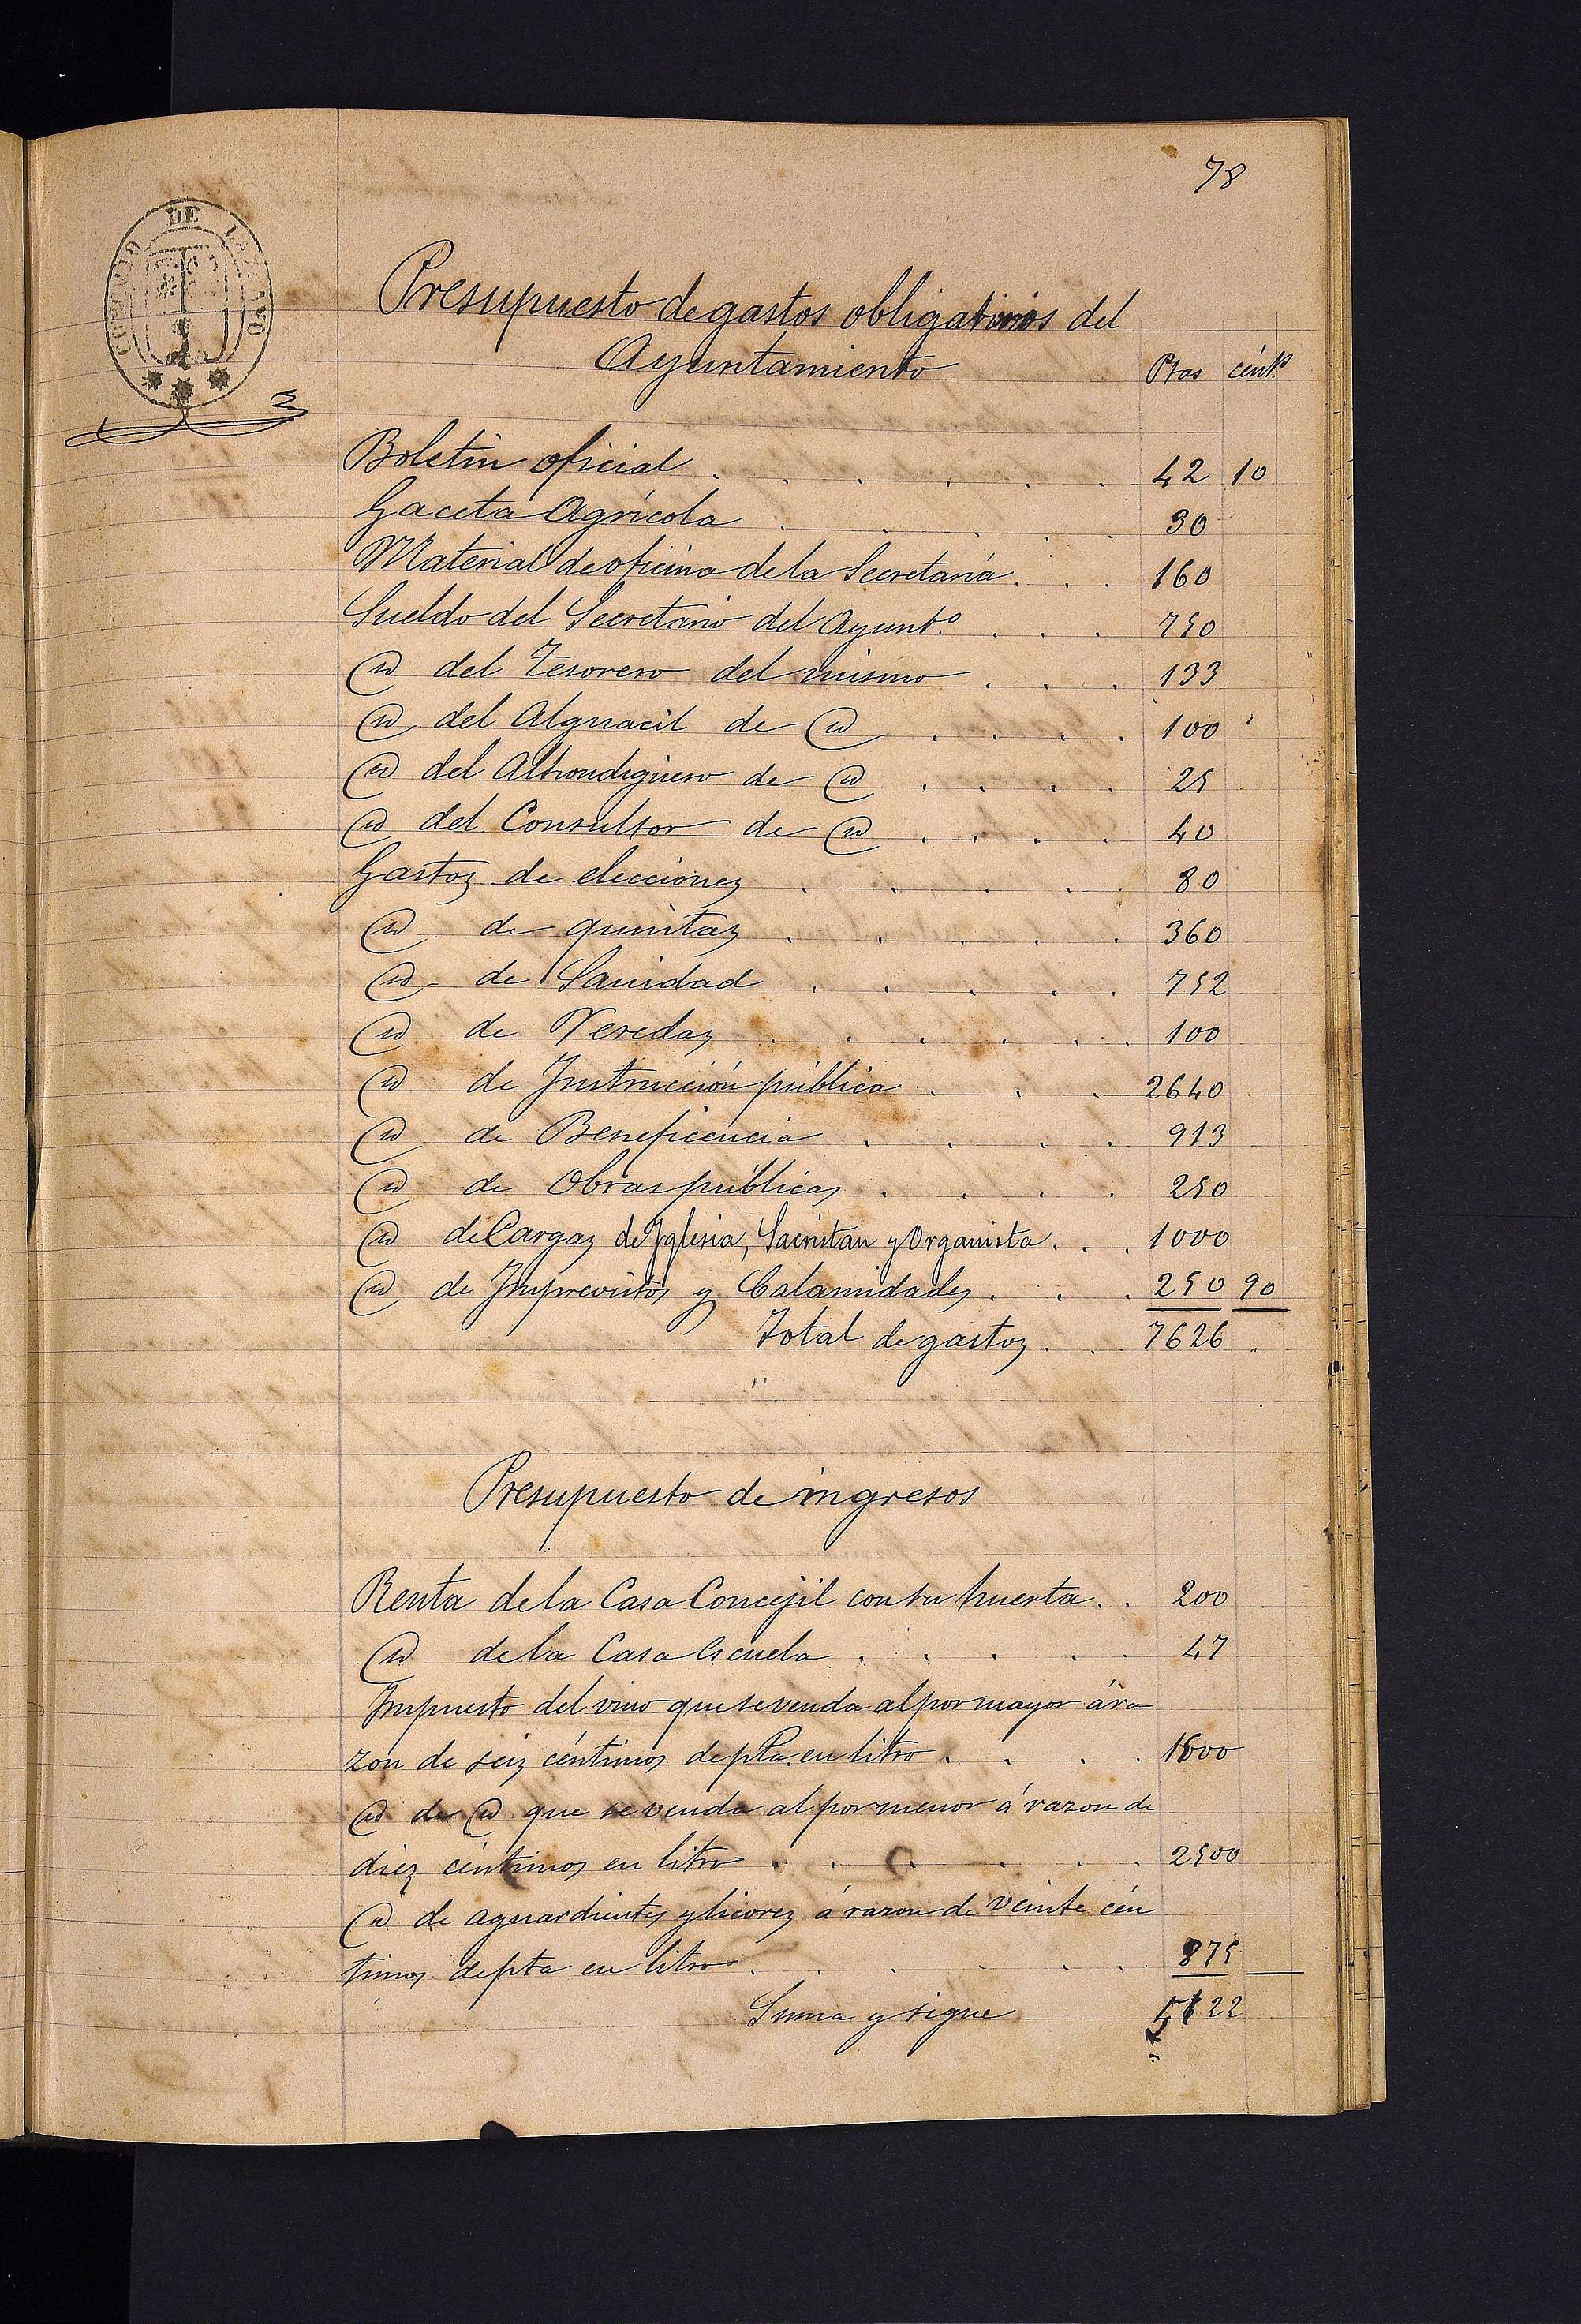 78
DE
Presupuesto de gastos obligatorios del
Ayuntamiento Ptas cénts
Boletin oficial . . . . . . 42 10
Gaceta Agrícola . . . . . 30
Material de oficina de la Secretaría . . . 160
Sueldo del Secretario del Ayuntº . . . 750
Id del Tesorero del mismo . . . 133
Id del Alguacil de Id . . . . 100
Id del Alhondiguero de Id . . . . 25
Id del Consultor de Id . . . . 40
Gastos de elecciones . . . . 80
Id de quintas . . . . . 360
Id de Sanidad . . . . . 752
Id de Veredas . . . . . 100
Id de Instrucción pública . . . 2640
Id de Beneficencia . . . . 913
Id de Obras públicas . . . . 250
Id de Cargas de Iglesia, Sacristan y Organista . . . 1000
Id de Imprevistos y Calamidades . . . 250 90
Total de gastos . . 7626 .
"
Presupuesto de ingresos
Renta de la Casa Concejil con su huerta . . 200
Id de la Casa Escuela . . . . . 47
Impuesto del vino que se venda al por mayor á ra
zon de seis céntimos de pta. en litro . . . . 1500
Id de Id que se venda al por menor á razon de
diez céntimos en litro . . . . . . 2500
Id de aguardientes y licores á razon de veinte cén
timos de pta en litro . . . . . . 875
Suma y sigue 5122